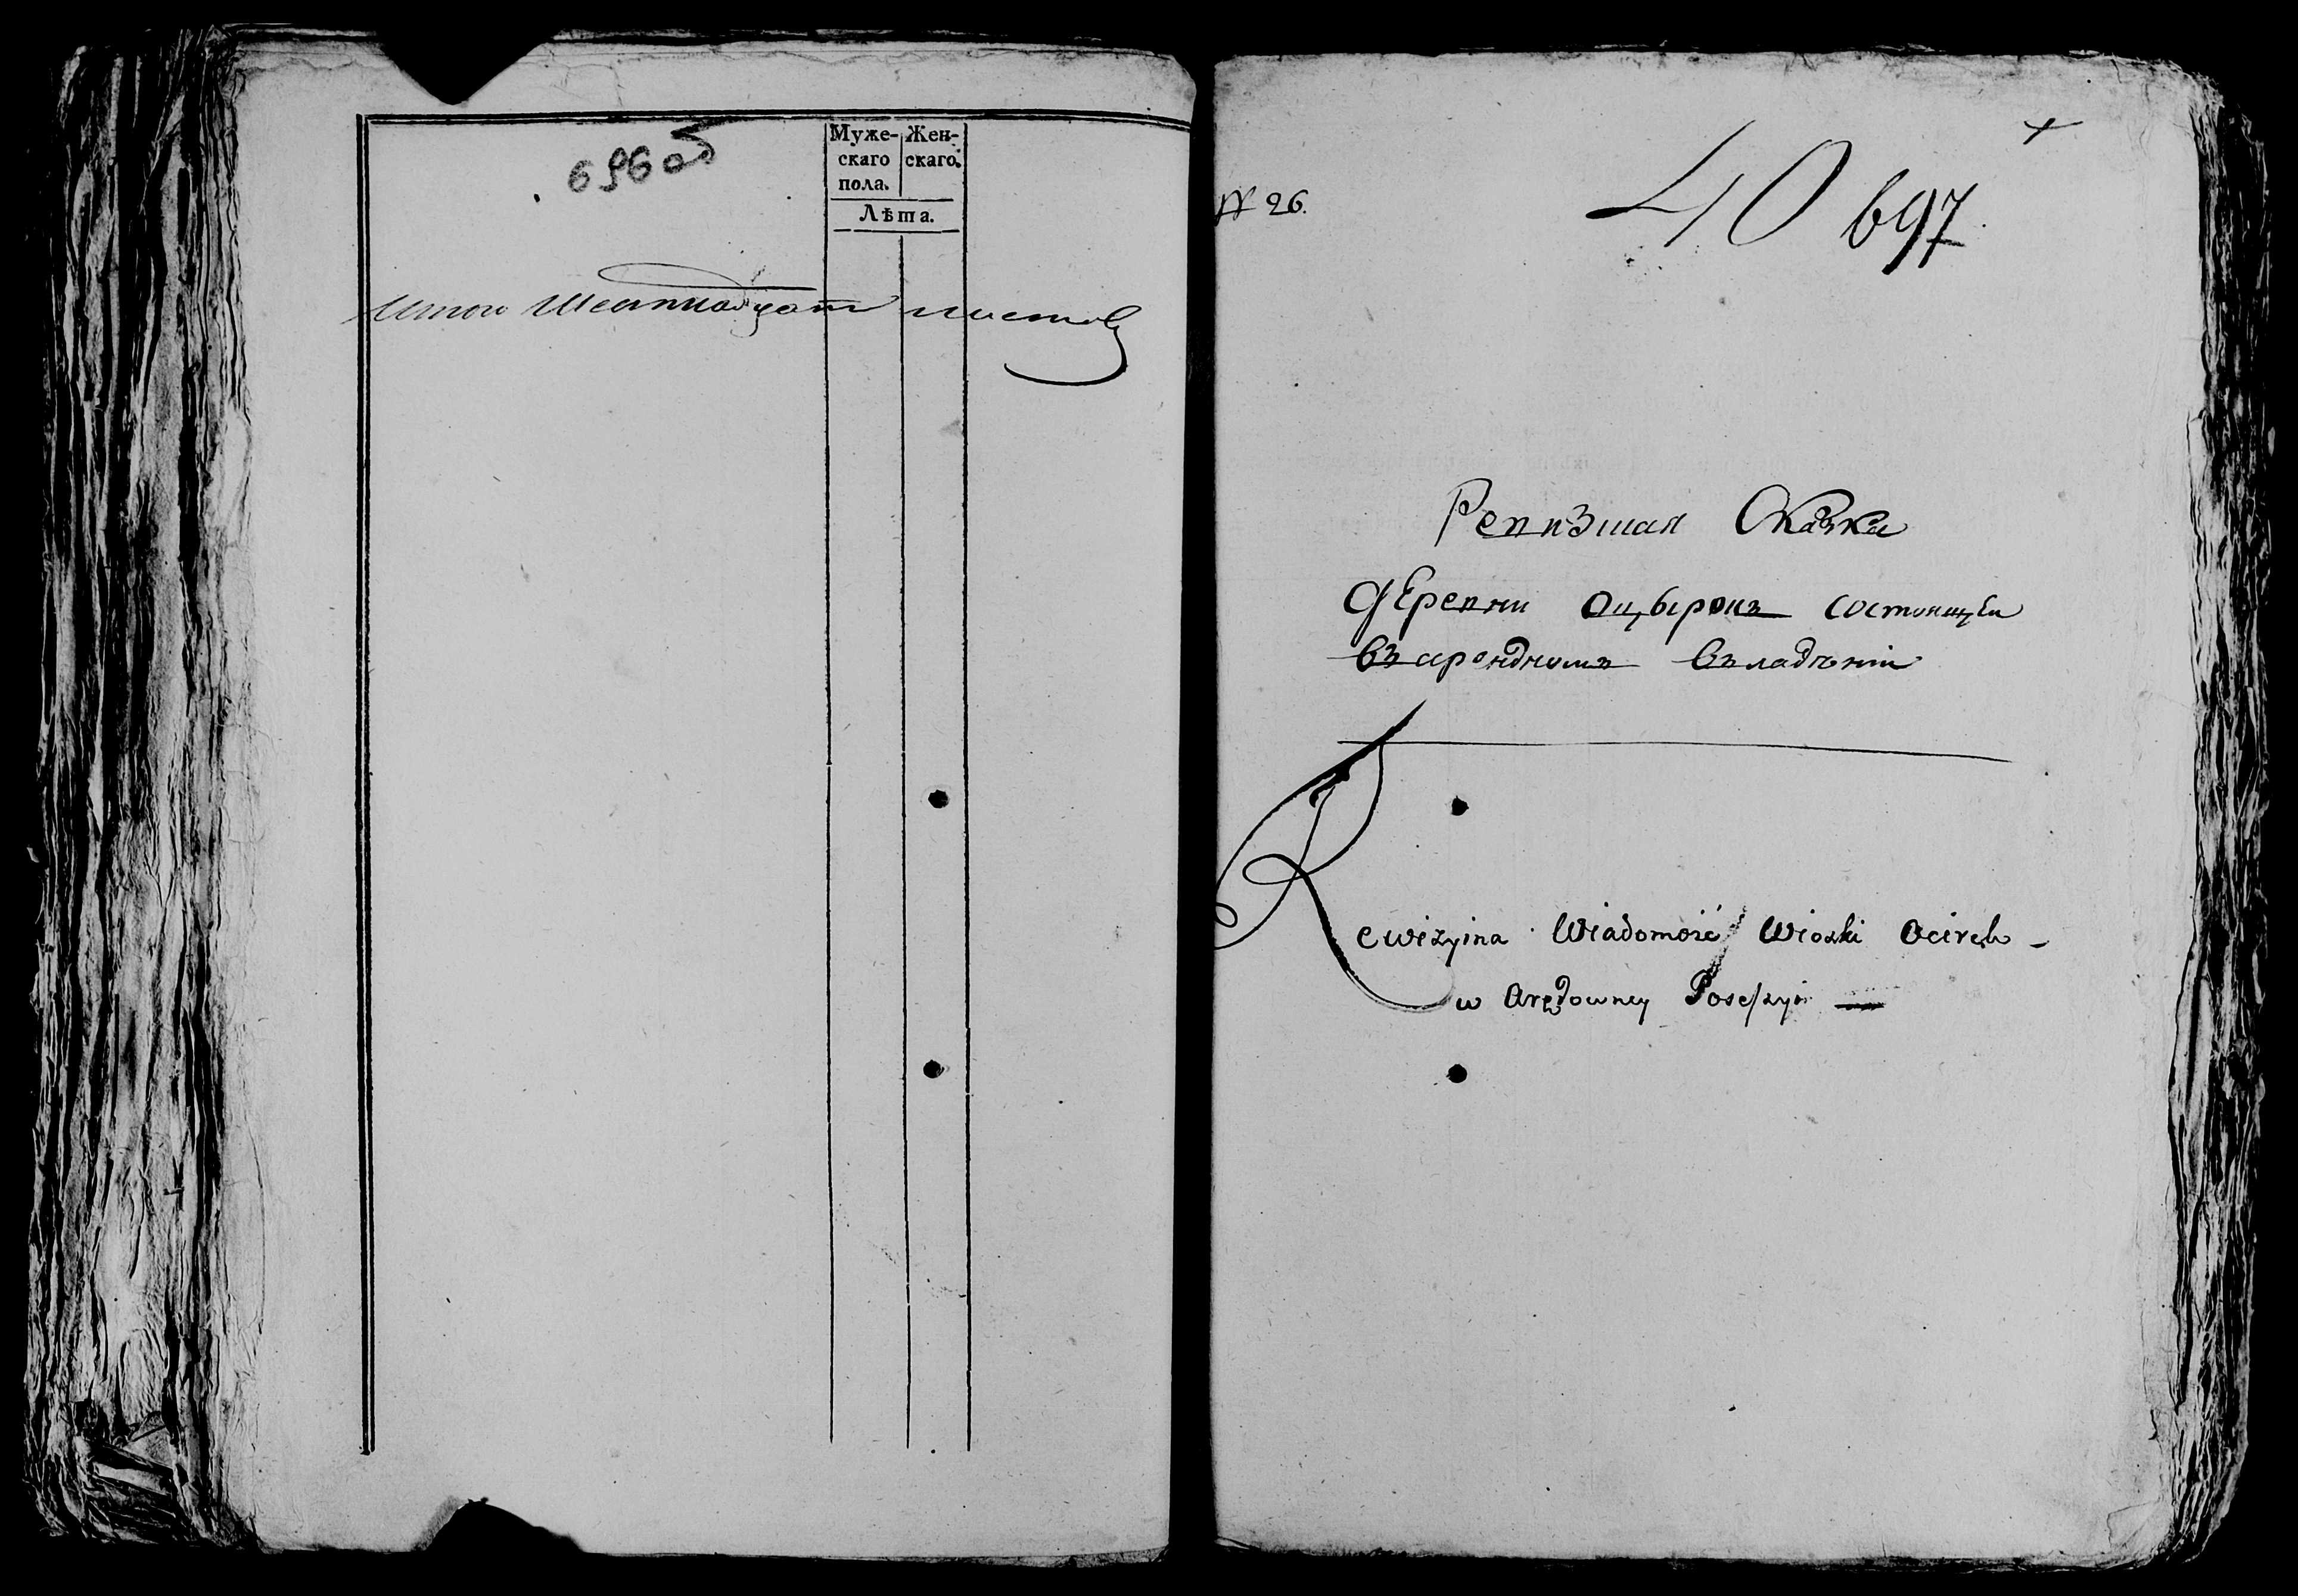 696 об
Муже-
скаго
пола.
Жен-
скаго.
Лѣта.
Итого Шестнадцат листовъ
№ 26.
40 697
Ревизшая Сказка
деревни Оцырокъ состоящеи
въ арендномъ въладѣніи
Rewizyina Wiadomość Wioski
w Arędowney Posessyi